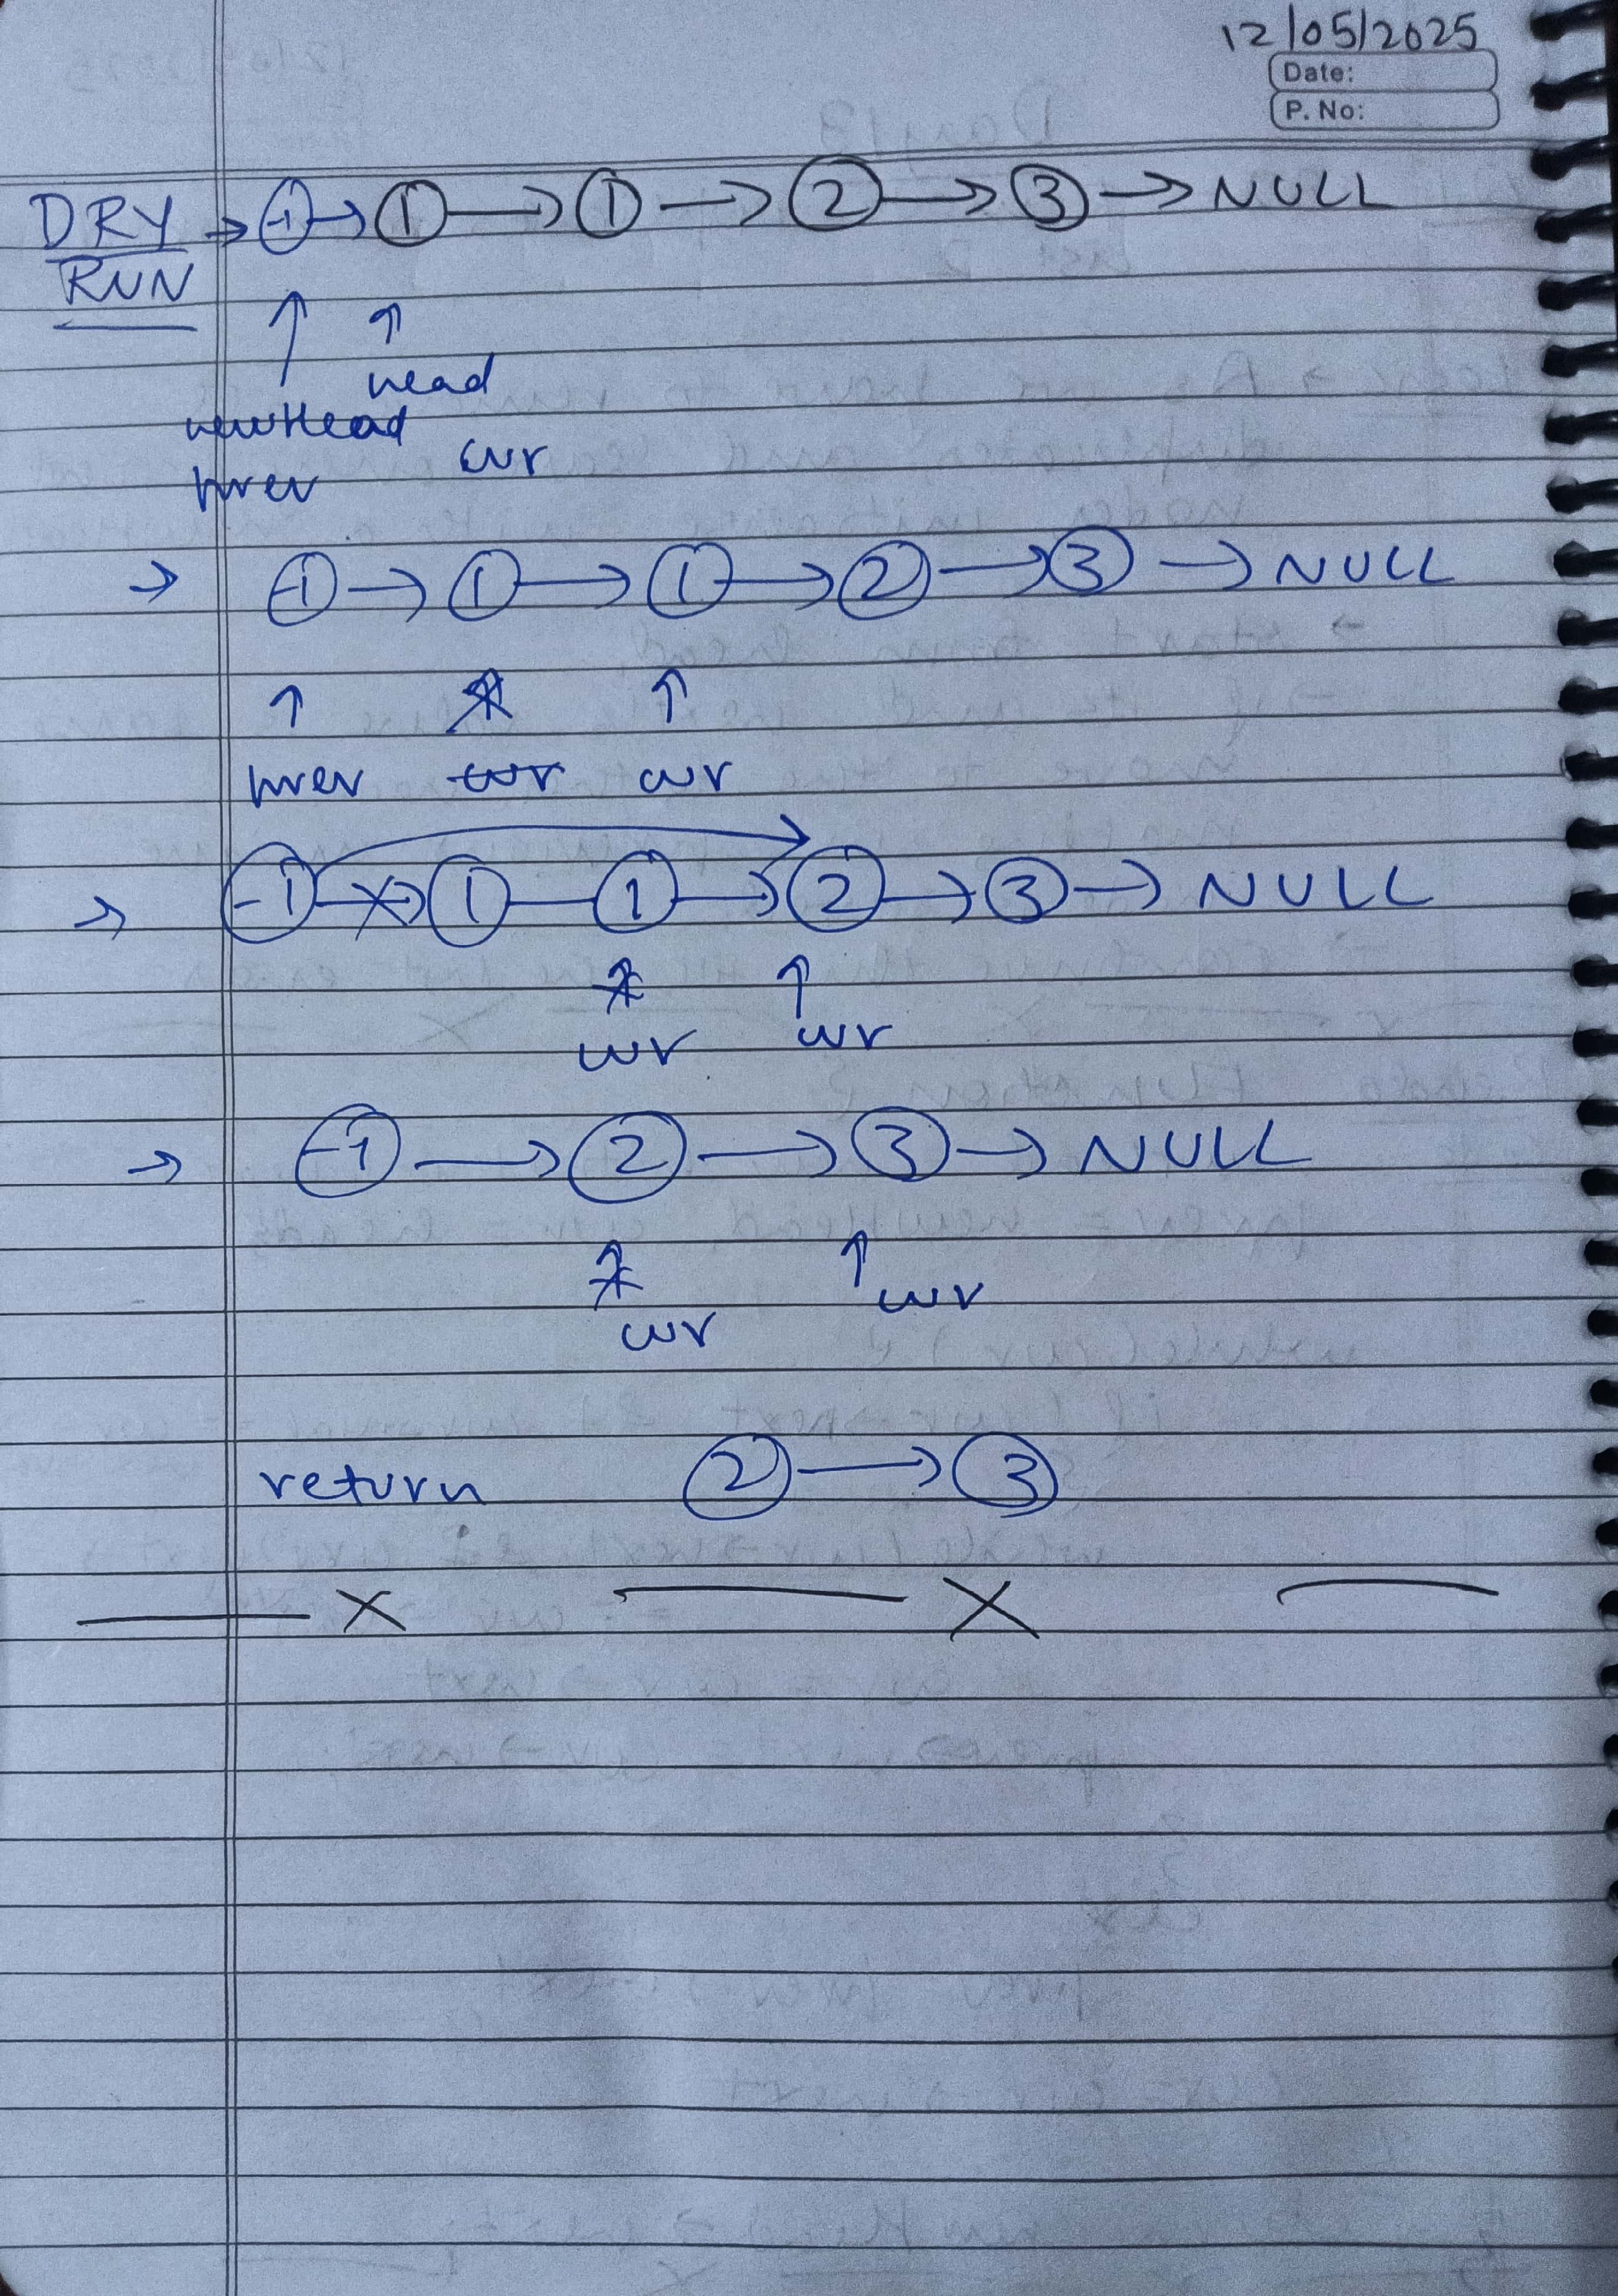 12/05/2025
Date:
P. No:
DRY RUN → -1 → 1 → 1 → 2 → 3 → NULL
↑ ↑
head
newHead
curr
prev
→ -1 → 1 → 1 → 2 → 3 → NULL
↑ ↑ ↑
prev curr curr
→ -1 → 1 — 1 → 2 → 3 → NULL
↑ ↑
curr curr
→ -1 → 2 → 3 → NULL
↑ ↑
curr curr
return 2 → 3
— X — X —